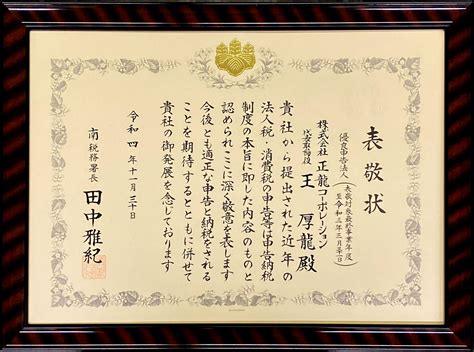 表敬状
優良申告法人
(表敬対象最終事業年度
至令和三年三月三十一日)
株式会社 正龍コーポレーション
代表取締役 王 厚龍 殿
貴社から提出された近年の
法人税・消費税の申告等は申告納税
制度の本旨に即した内容のものと
認められここに深く敬意を表します
今後とも適正な申告と納税をされる
ことを期待するとともに併せて
貴社の御発展を念じております
令和四年十一月三十日
南税務署長
田中雅紀